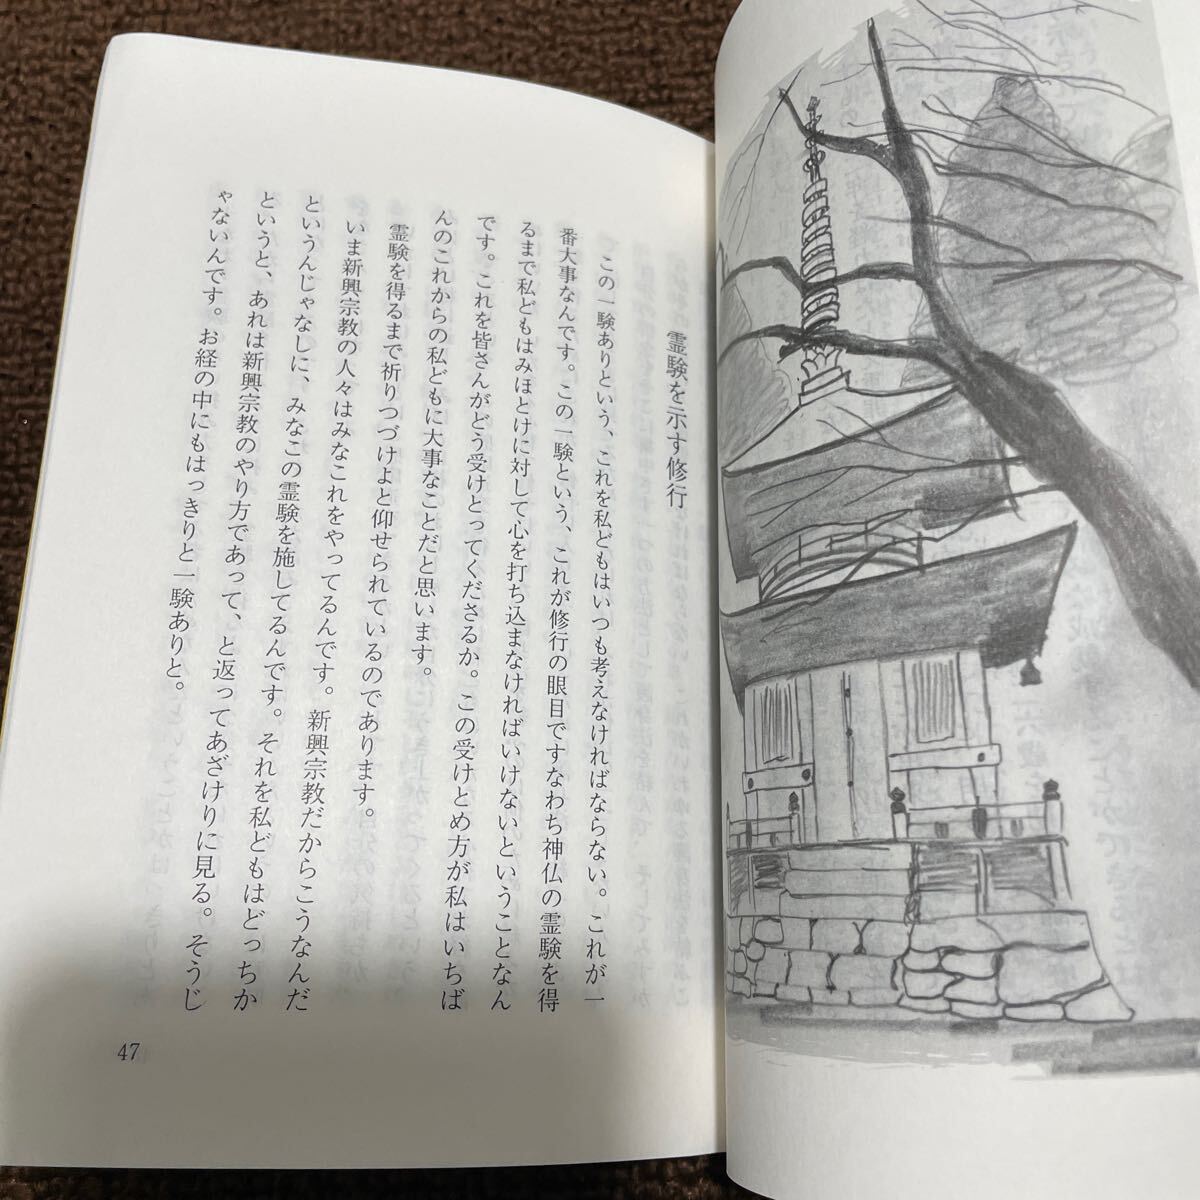 霊験を示す修行
この一験ありという、これを私どもはいつも考えなければならない。これが一
番大事なんです。この一験という、これが修行の眼目ですなわち神仏の霊験を得
るまで私どもはみほとけに対して心を打ち込まなければいけないということなん
です。これを皆さんがどう受けとってくださるか。この受けとめ方が私はいちば
んのこれからの私どもに大事なことだと思います。
霊験を得るまで祈りつづけよと仰せられているのであります。
いま新興宗教の人々はみなこれをやってるんです。新興宗教だからこうなんだ
というんじゃなしに、みなこの霊験を施してるんです。それを私どもはどっちか
というと、あれは新興宗教のやり方であって、と返ってあざけりに見る。そうじ
ゃないんです。お経の中にもはっきりと一験ありと。
47